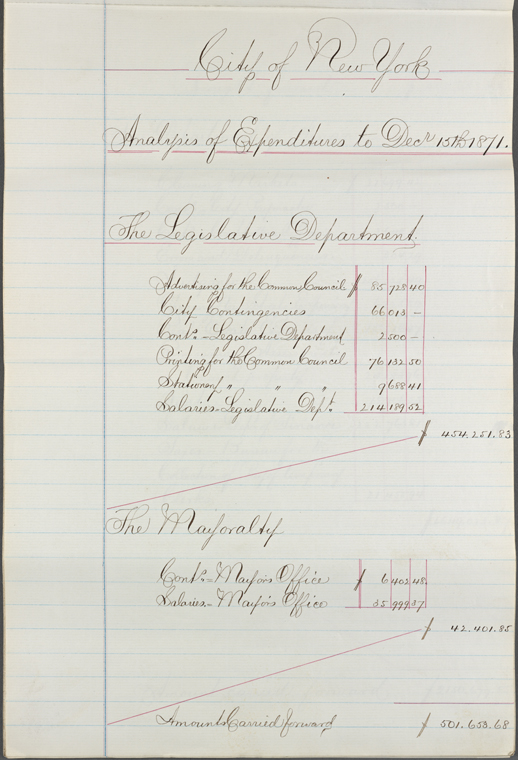 City of New York
Analysis of Expenditures to Decr 15th 1871.
The Legislative Department.
Advertising for the Common Council $ 85 728 40
City Contingencies 66 013 –
Conts. – Legislative Department 2 500 –
Printing for the Common Council 76 132 50
Stationery " " " 9 688 41
Salaries – Legislative Dept. 214 189 52
$ 454.251.83
The Mayoralty
Conts. – Mayor's Office $ 6 402 48
Salaries – Mayor's Office 35 999 37
$ 42.401.85
Amounts Carried forward $ 501.653.68